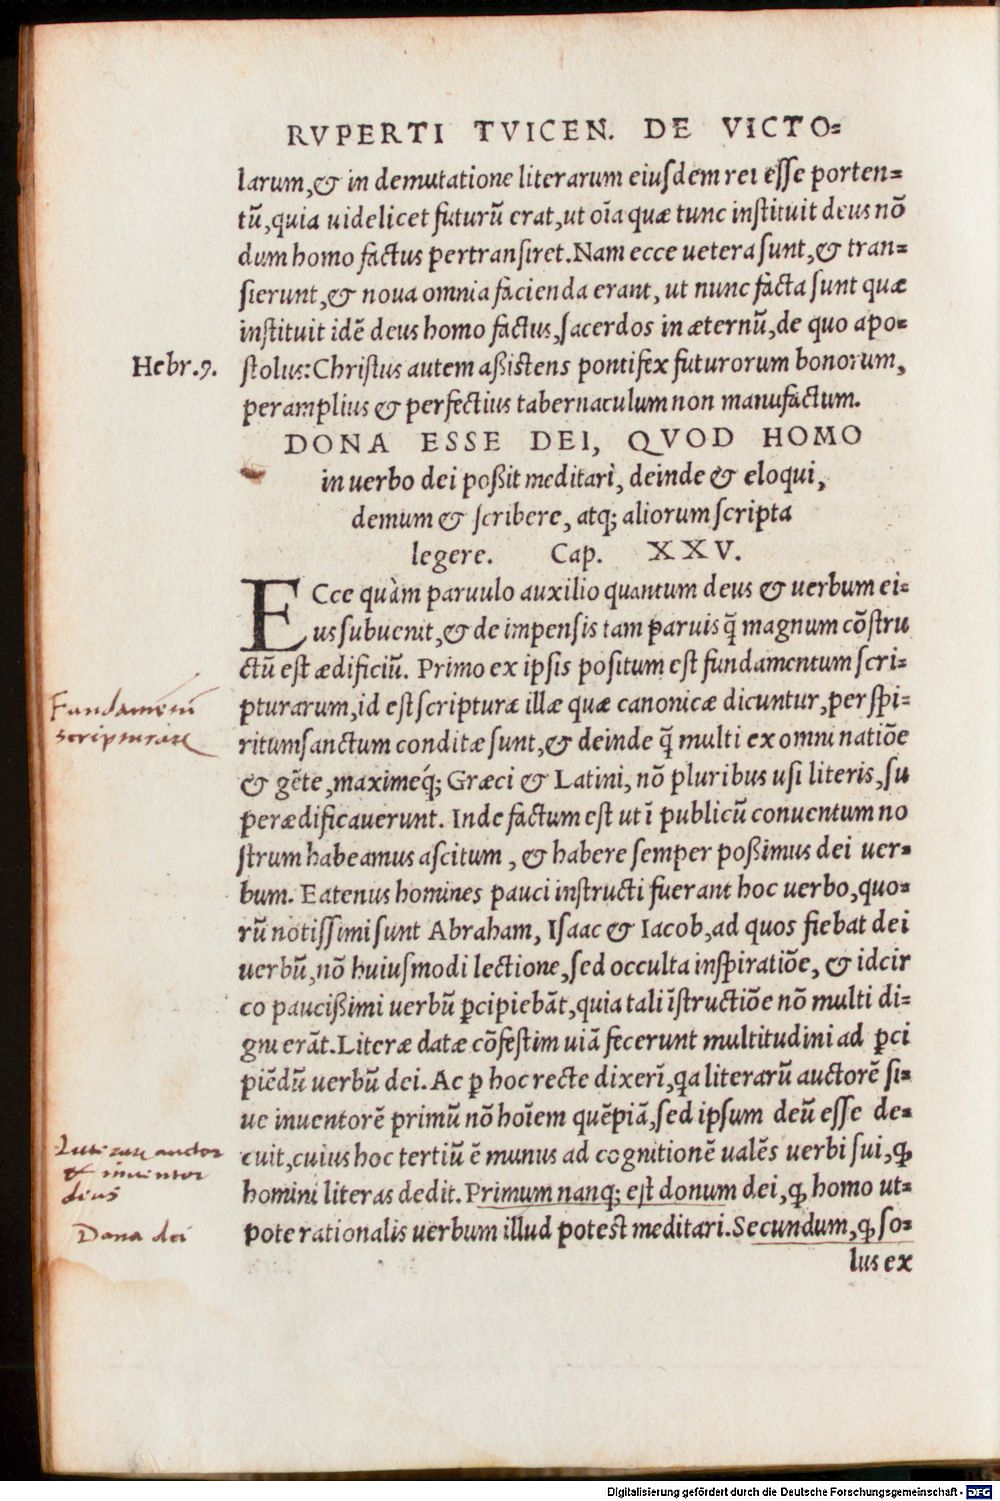 RVPERTI TVICEN. DE VICTO=
larum,& in demutatione literarum eiusdem rei esse porten=
tū,quia uidelicet futurū erat,ut oīa quæ tunc instituit deus nō
dum homo factus pertransiret.Nam ecce uetera sunt,& tran=
sierunt,& noua omnia facienda erant, ut nunc facta sunt quæ
instituit idē deus homo factus,sacerdos in æternū,de quo apo=
Hebr.9.
stolus:Christus autem aßistens pontifex futurorum bonorum,
per amplius & perfectius tabernaculum non manufactum.
DONA ESSE DEI, QVOD HOMO
in uerbo dei poßit meditari, deinde & eloqui,
demum & scribere, atq; aliorum scripta
legere. Cap. XXV.
ECce quàm paruulo auxilio quantum deus & uerbum ei=
us subuenit,& de impensis tam paruis q̄ magnum cōstru
ctū est ædificiū. Primo ex ipsis positum est fundamentum scri=
pturarum,id est scripturæ illæ quæ canonicæ dicuntur,per spi=
Fundamentū
scripturare
ritumsanctum conditæ sunt,& deinde q̄ multi ex omni natiōe
& gēte,maximeq́; Græci & Latini,nō pluribus usi literis,su
perædificauerunt. Inde factum est ut ī publicū conuentum no
strum habeamus ascitum , & habere semper poßimus dei uer=
bum. Eatenus homines pauci instructi fuerant hoc uerbo,quo=
rū notissimi sunt Abraham, Isaac & Iacob,ad quos fiebat dei
uerbū,nō huiusmodi lectione,sed occulta inspiratiōe, & idcir
co paucißimi uerbū ꝑcipiebāt,quia tali īstructiōe nō multi di=
gni erāt.Literæ datæ cōfestim uiā fecerunt multitudini ad ꝑci
piēdū uerbū dei. Ac ꝑ hoc recte dixerī,qa literarū auctorē si=
ue inuentorē primū nō hoīem quēpiā,sed ipsum deū esse de=
Literare auctor
& inuentor
deus
cuit,cuius hoc tertiū ē munus ad cognitionē ualēs uerbi sui,ꝙ
homini literas dedit. Primum nanq; est donum dei,ꝙ homo ut=
Dona dei
pote rationalis uerbum illud potest meditari.Secundum,ꝙ so=
lus ex
Digitalisierung gefördert durch die Deutsche Forschungsgemeinschaft - DFG